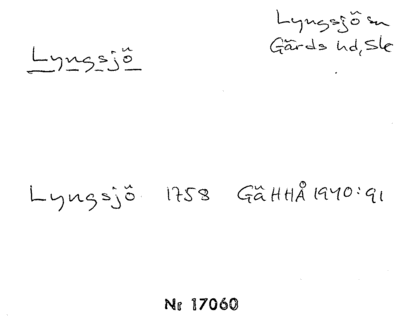 Lyngsjö sn
Gärds hd, Sk
Lyngsjö
Lyngsjö 1758 GäHHÅ 1940:91
Nr 17060